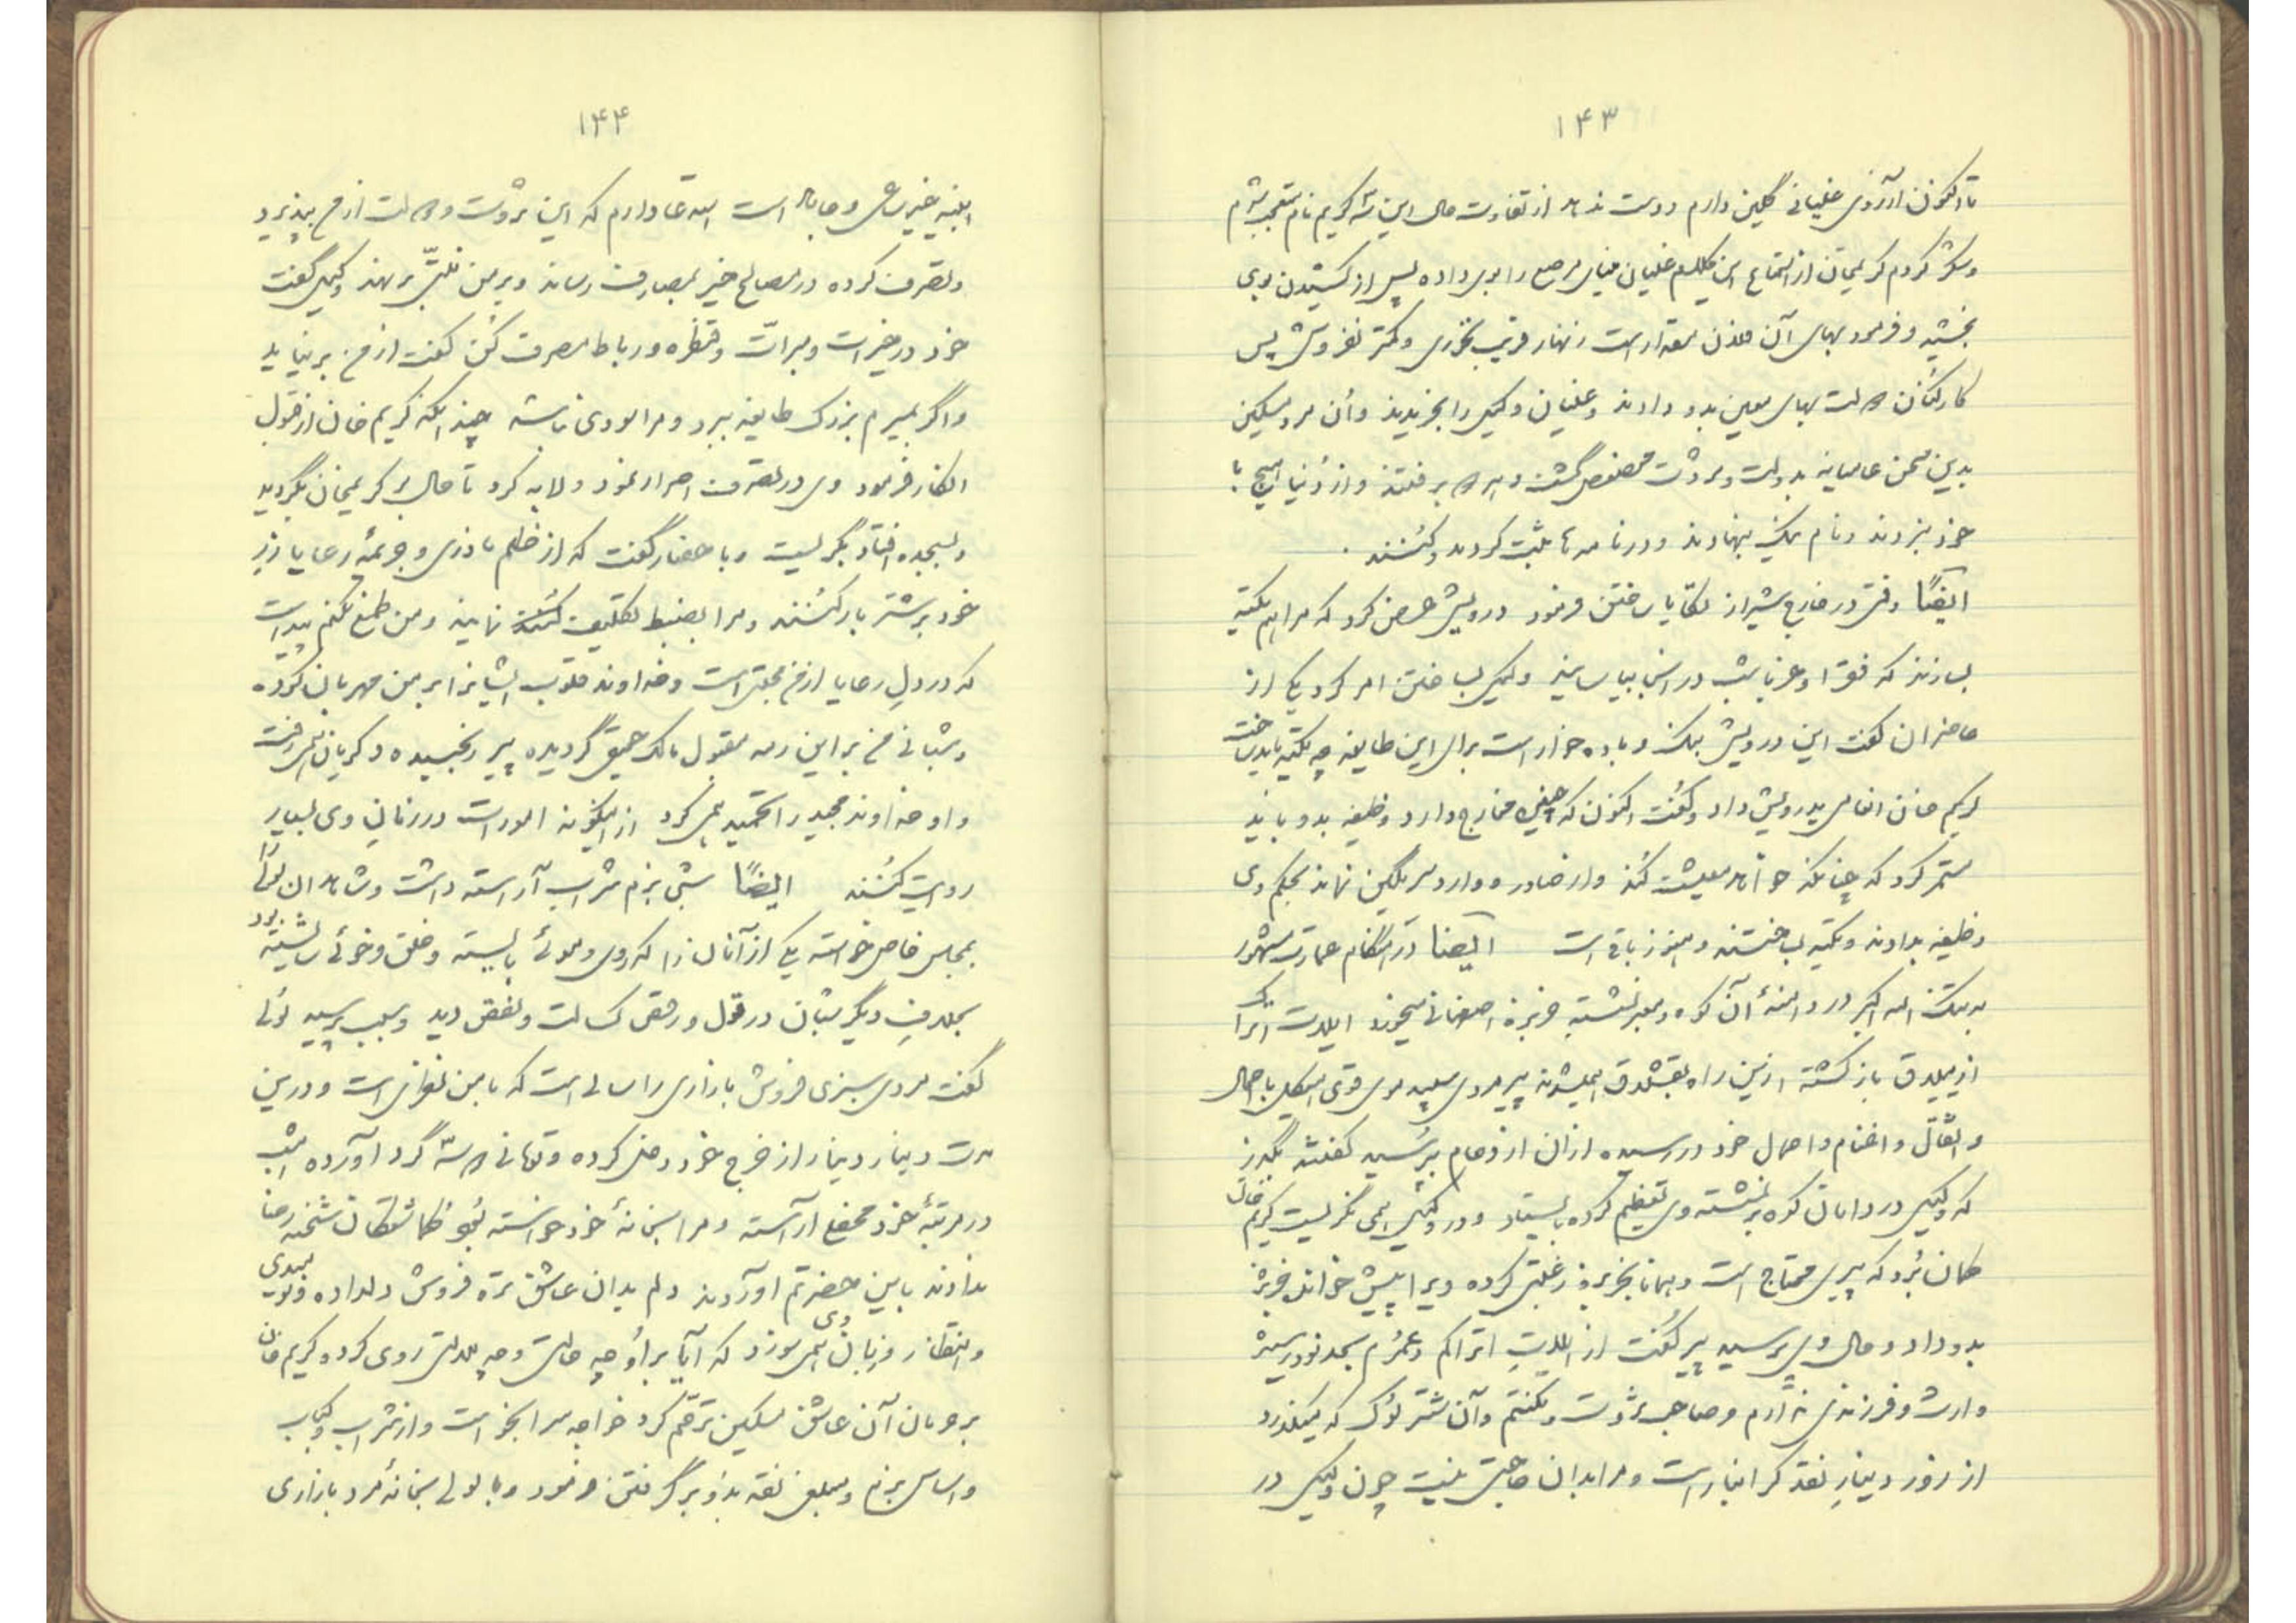 ۱۴۳
تا اکنون آرزوی غلیانی گلین دارم و دست ندهد از تفاوت حال این سه کریم نام متعجب شدم
و شکر کردم کریمخان از استماع این کلام غلیان مینای مرصع را بوی داده پس از کشیدن بوی
بخشید و فرمود بهای آن فلان مقدار است زنهار فریب نخوری و کمتر نفروشی پس
کارکنان دولت بهای معین بدو دادند و غلیان وکیل را بخریدند و آن مرد مسکین
بدین سخن عامیانه بدولت و ثروت مخصوص گشت و همه برفتند و از دنیا هیچ با
خود نبردند و نام نیک بنهادند و در نامه‌ها ثبت کردند و کنند .
ایضاً وقتی در خارج شیراز تکایا ساختن فرمود درویشی عرض کرد که مرا هم تکیه
بسازند که فقرا و غربا شب در آن بیاسایند وکیل بساختن امر کرد یکی از
حاضران گفت این درویش بنگ و باده خوار است برای این طایفه چه تکیه باید ساخت
کریم خان انعامی بدرویش داد و گفت اکنون که چنین مخارج دارد وظیفه بدو باید
مستمر کرد که چنانکه خواهد معیشت کند و از صادر و وارد شرمگین نماند بحکم وی
وظیفه بدادند و تکیه بساختند و هنوز باقی است ایضا در هنگام عمارت مشهور
به تنگ الله اکبر در دامنهٔ آن کوه و معبر نشسته خربزه اصفهانی میخورد ایلات اتراک
از ییلاق باز گشته ازین راه بقشلاق همیشدند پیرمردی سپید موی قوی هیکل با جمال
و اثقال و اغنام و احمال خود در رسیده از آن ازدحام پرسید گفتند بگذر
که وکیل در دامان کوه بنشسته وی تعظیم کرده بایستاد و در وکیل همی نگریست کریم خان
گمان برد که پیری محتاج است و همانا بخربزه رغبتی کرده ویرا پیش خواند خربزه
بدو داد و حال وی پرسید پیر گفت از ایلات اتراکم و عمرم بحد نود رسیده
وارث و فرزندی ندارم و صاحب ثروت و مکنتم و آن شتر لوک که میگذرد
از زر و دینار نقد گرانبار است و مرا بدان حاجتی نیست چون وکیل در
۱۴۴
ابنیه خیر ساعی و جاهد است استدعا دارم که این ثروت و دولت از من بپذیرد
و تصرف کرده در مصالح خیر بمصارف رساند و بر من منت برنهد وکیل گفت
خود در خیرات و مبرات و قنطره و رباط مصرف کن گفت از من برنیاید
و اگر بمیرم بزرگ طایفه ببرد و مرا سودی نباشد چندانکه کریم خان از قبول
انکار فرمود وی در تصرف اصرار نمود و لابه کرد تا حال بر کریمخان بگردید
و بسجده افتاد بگریست و با حضار گفت که از ظلم نادری و جریمهٔ رعایا زر
خود بر شتر بار کنند و مرا بضبط تکلیف نمایند و من طمع نکنم پیداست
که در دل رعایا از من محبتی است و خداوند قلوب ایشانرا بر من مهربان کرده
و شبانی من بر این رمه مقبول مالک حقیقی گردیده پیر رنجیده و گریان همی رفت
و او خداوند مجید را تحمید همی کرد ازینگونه امور است در زمان وی بسیار
روایت کنند ایضاً شبی بزم شراب آراسته داشت و شاهدان لولی را
بمجلس خاص خواسته یکی از آنان را که روی و موئی بایسته و خلق و خوئی شایسته بود
بخلاف دیگر شبان در قول و رقص کسالت و نقص دید و سبب پرسید لولی
گفت مردی سبزی فروش بازاری را سالی است که با من نظری است و درین
مدت دینار دینار از خرج خود دخل کرده و تومانی دو سه گرد آورده امشب
در مرتبهٔ خود محفلی آراسته و مرا بخانهٔ خود خواسته شحنه رضا
ندادند باین حضرتم آوردند و دلم بدان عاشق تره فروش دلداده
و انتظار و زیان وی همی سوزد که آیا بر او چه حالت و چه ملالت روی کرد و کریم خان
بر حرمان آن عاشق مسکین ترحم کرد خواجه سرا بخواست و از شراب و کباب
و اساس بزم و مبلغی نقد بدو برگرفتن فرمود و با لولی بخانهٔ مرد بازاری